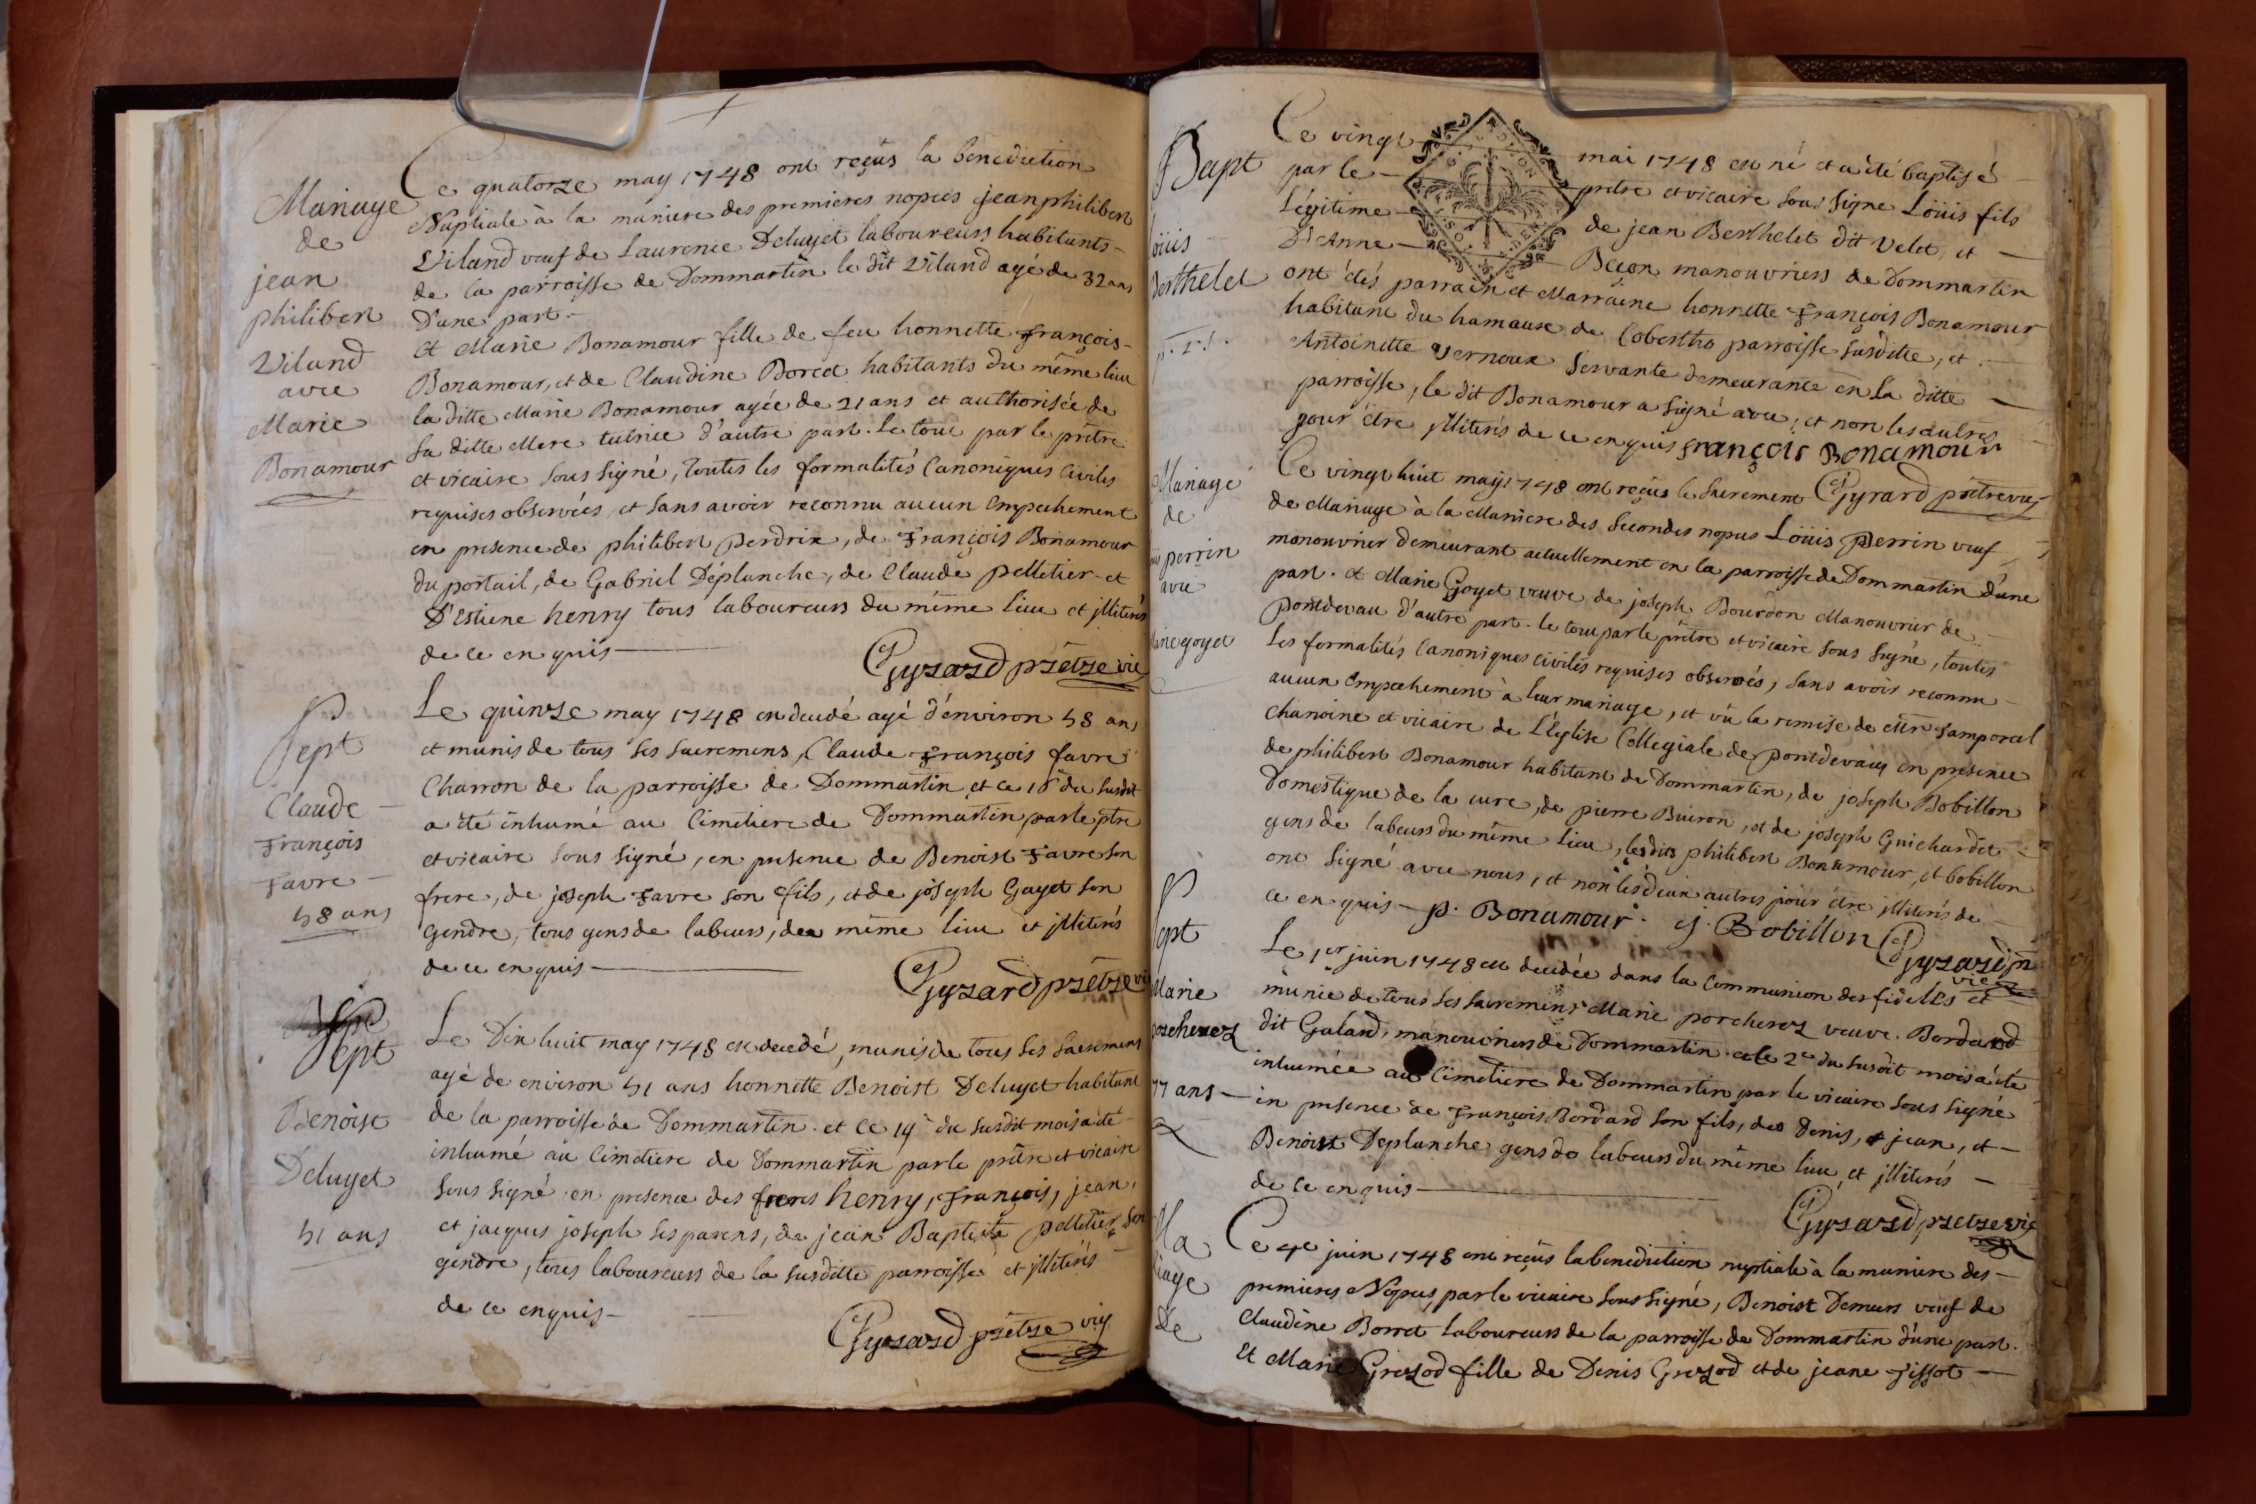 Mariage
de
jean
philibert
Viland
avec
Marie
Bonamour
Ce quatorze may 1748 ont reçûs la benediction
Nuptiale à la maniere des premieres nopces jean philibert
Viland veuf de Laurence Deluyet laboureurs habitants
de la parroisse de Dommartin le dit Viland agé de 32 ans
D'une part.
et Marie Bonamour fille de feu honnette françois
Bonamour, et de Claudine Borcet habitants du même lieu
la ditte Marie Bonamour agée de 21 ans et authorisée de
Sa ditte Mere tutrice d'autre part. Le tout par le prêtre
et vicaire sous signé, toutes les formalités Canoniques Civiles
requises observées et sans avoir reconnu aucun Empechement
en presence de philibert perdrix, de François Bonamour
du portail, de Gabriel Déplanche, de Claude pelletier et
D'Estiene henry tous laboureurs du même lieu et jlliterés
de ce enquis
Gyrard prêtre vic
Sept
Claude
François
Favre
58 ans
Le quinze may 1748 est decedé agé d'environ 58 ans
et munis de tous ses sacremens, Claude François favre
Charron de la parroisse de Dommartin et ce 16e du susdit
a été inhumé au Cimetiere de Dommartin par le ptre
et vicaire sous signé, en presence de Benoist Favre son
frere, de joseph Favre son fils, et de joseph Gayet son
gendre, tous gens de labeurs, du même lieu et jlliterés
de ce enquis
Gyrard prêtre vic
Sept
Benoist
Deluyet
51 ans
Le Dix huit may 1748 est decedé, munis de tous ses sacremens
agé de environ 51 ans honnette Benoist Deluyet habitant
de la parroisse de Dommartin. et ce 19e du susdit mois a été
inhumé au Cimetiere de Dommartin par le prêtre et vicaire
sous signé en presence des freres henry, François, jean,
et jacques joseph ses parens, de jean Baptiste pelletier son
gendre, tous laboureurs de la susditte parroisse et jlliterés
de ce enquis
Gyrard prêtre vic
Bapt
Löuis
Berthelet
Ce vingt mai 1748 est né et a été baptisé
par le prêtre et vicaire sous signé Löuis fils
Légitime de jean Berthelet dit Velet, et
D'Anne Becon manouvriers de Dommartin
ont étés parrain et Marraine honnette François Bonamour
habitant du hamaux de Cobertho parroisse susditte, et
Antoinette Vernoux Servante demeurante en la ditte
parroisse, le dit Bonamour a signé avec, et non les autres
pour être jlliterés de ce enquis françois Bonamour
Gyrard prêtre vic
Mariage
de
perrin
avec
goyet
Ce vingt huit may 1748 ont reçûs le Sacrement
de Mariage à la Maniere des Secondes nopces Löuis perrin veuf
manouvrier demeurant actuellement en la parroisse de Dommartin d'une
part. et Marie Goyet veuve de joseph Bourdon Manouvrier de
pontdevau d'autre part. le tout par le prêtre et vicaire sous signé, toutes
les formalités Canoniques civiles requises observées, sans avoir reconnu
aucun Empechement à leur mariage, et vû la remise de Mr Samporcel
chanoine et vicaire de L'église Collegiale de pontdevaux en presence
de philibert Bonamour habitant de Dommartin, de joseph Bobillon
Domestique de la cure, de pierre Buiron, et de joseph Guichardet
gens de labeurs du même lieu, lesdits philibert Bonamour, et bobillon
ont signé avec nous, et non les deux autres pour être jlliterés de
ce enquis p. Bonamour. j. Bobillon Gyrard
vic
Sept
Marie
porcherez
77 ans
Le 1er juin 1748 est decedée dans la Communion des fidelles et
munie de tous ses sacremens Marie porcherez veuve Bordard
dit Galand, manouvriers de Dommartin. et le 2e du susdit mois a été
inhumée au Cimetiere de Dommartin par le vicaire sous signé
en presence de François Bordard son fils, des Denis, jean, et
Benoist Deplanche gens de labeurs du même lieu, et jlliterés
de ce enquis
Gyrard prêtre vic
Ma
riage
de
Ce 4e juin 1748 ont reçûs la benediction nuptiale à la maniere des
premieres Nopces par le vicaire sous signé, Benoist Demurs veuf de
Claudine Borret Laboureurs de la parroisse de Dommartin d'une part.
Et Marie Grezod fille de Denis Grezod et de jeane fissot